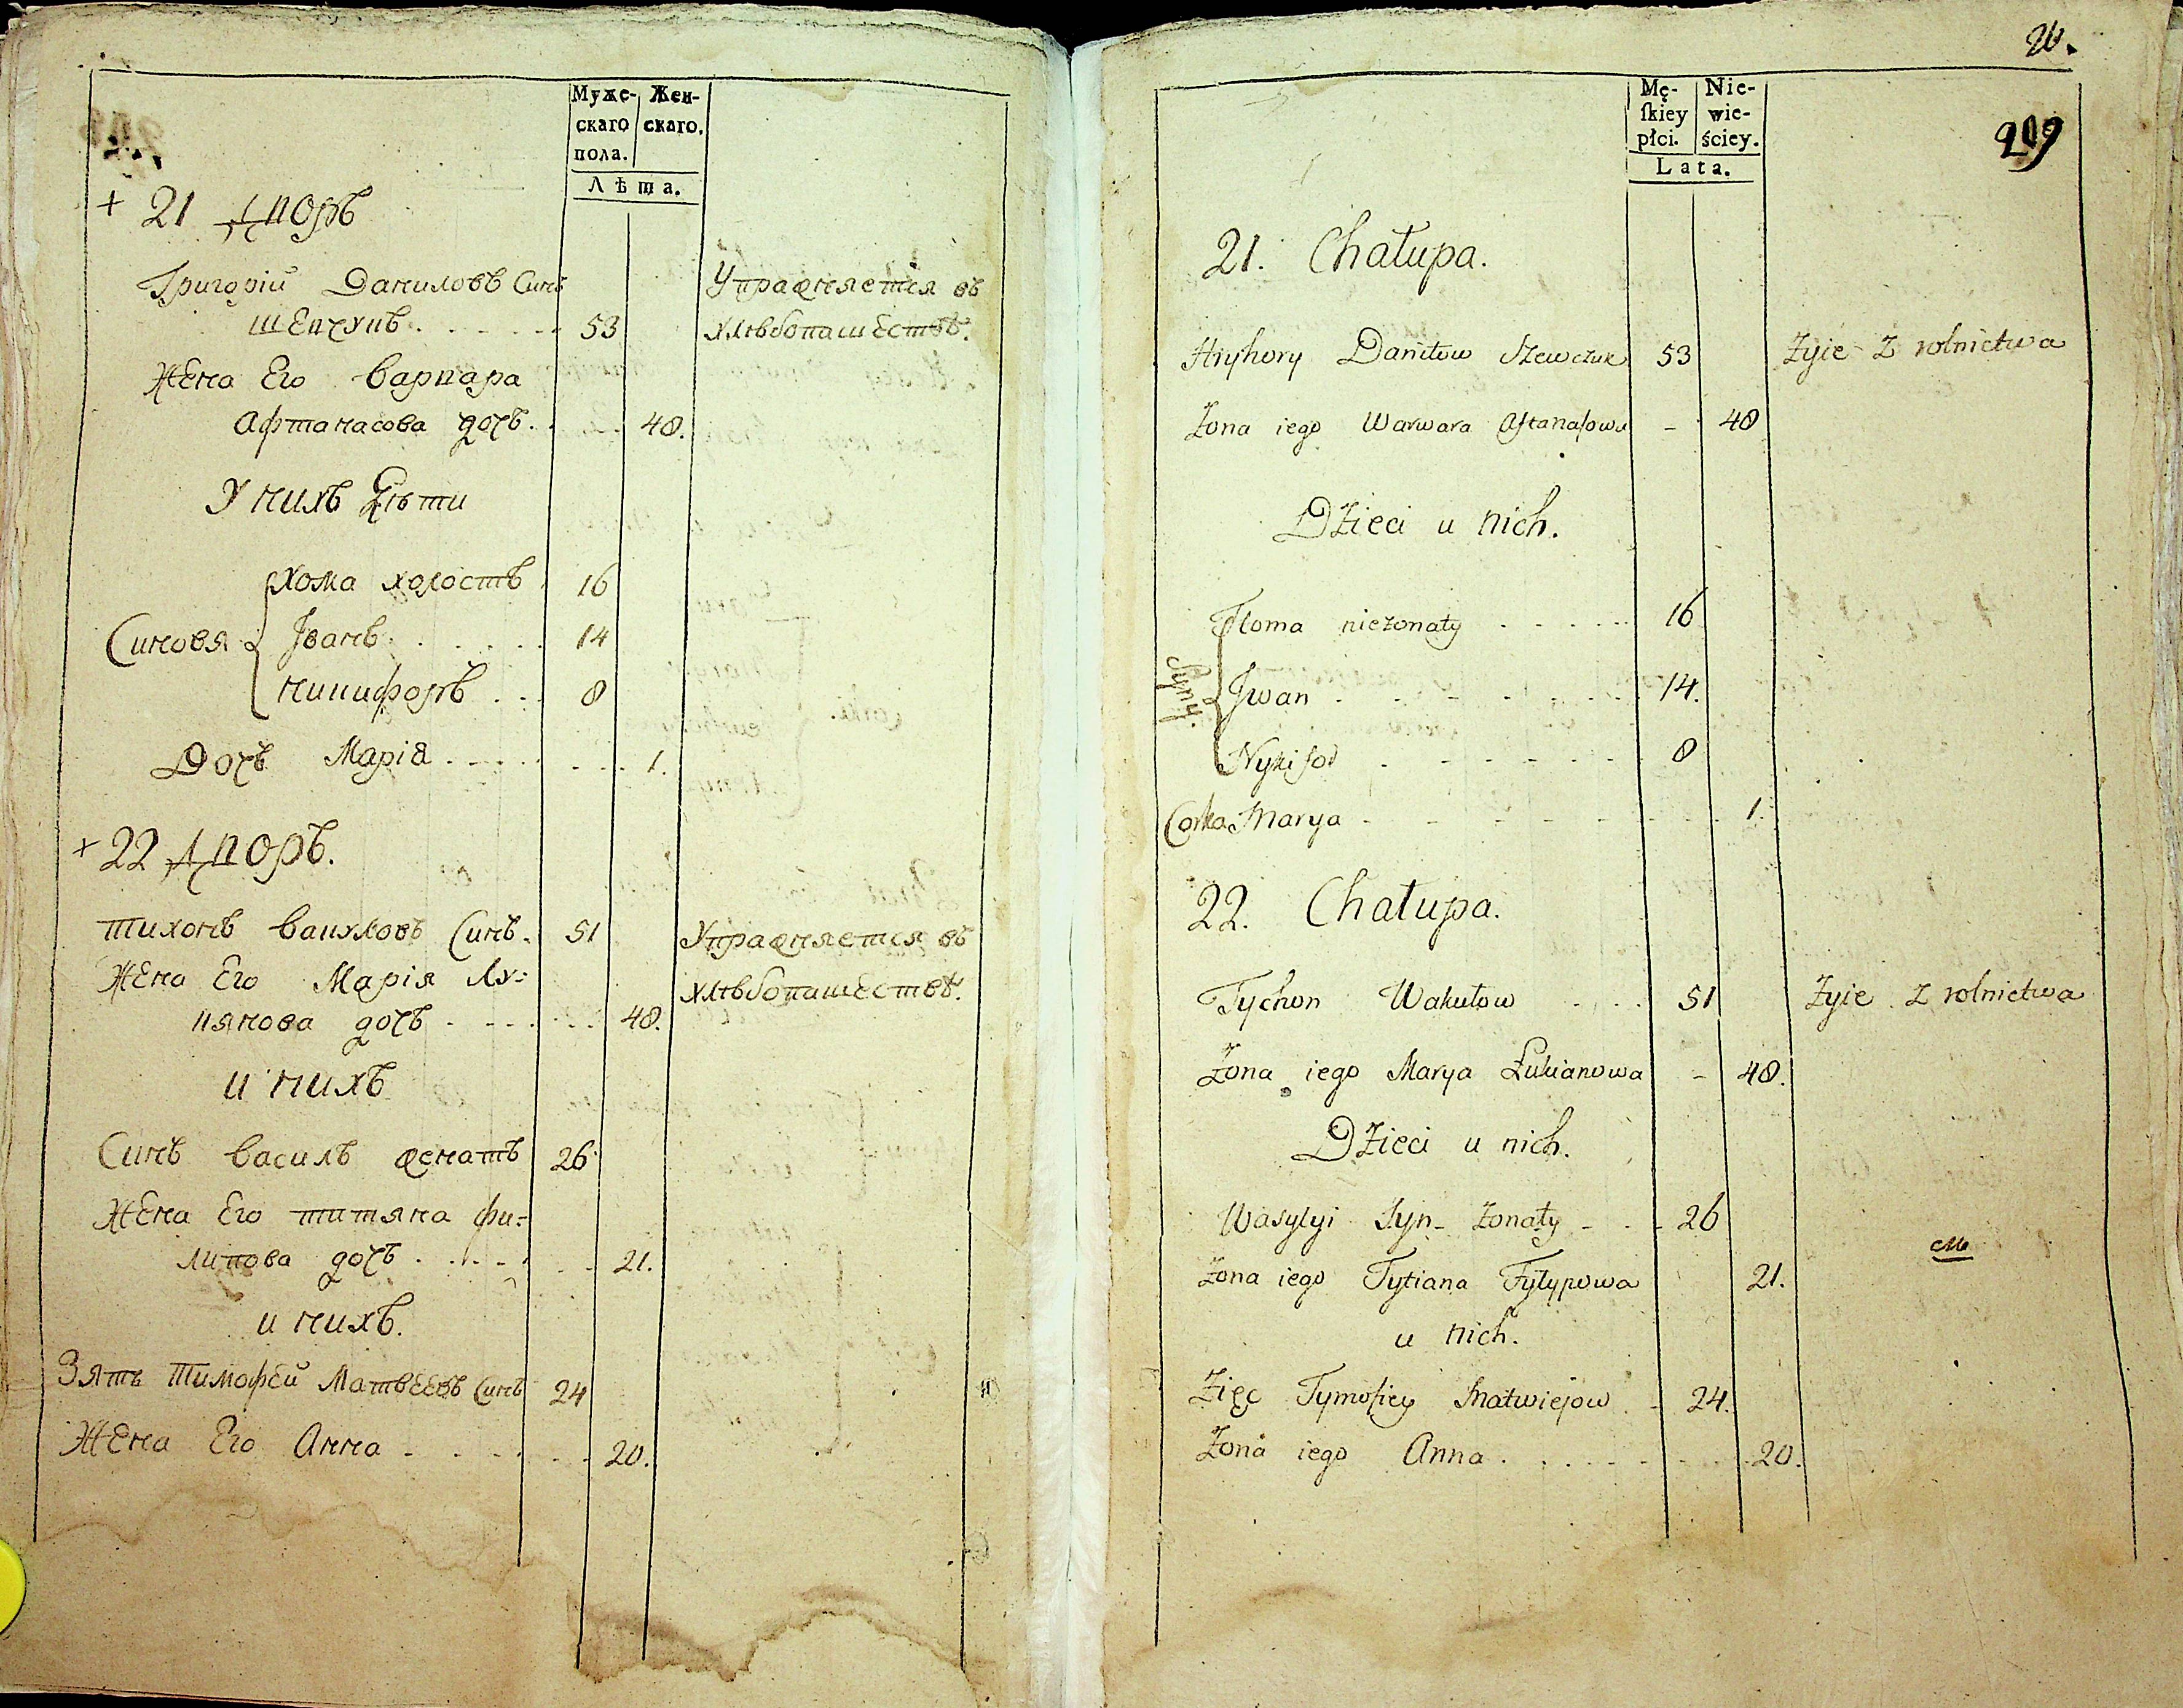 Муже- Жен-
скаго скаго.
пола.
Лѣта.
+ 21 Дворъ
Григорій Даниловъ Синъ
шевчукъ . . . . . 53 Упражняется въ
хлѣбопашествѣ.
Жена Его Варвара
Афтанасова дочъ. . . . 48.
У нихъ Дѣти
Хома холостъ 16
Синовя Іванъ . . . . . 14
никифоръ . . . 8
Дочъ Марія . . . . . . . . 1.
+ 22 Дворъ.
тихонъ вакуловъ Синъ. 51 Упражняется въ
Жена Его Марія Лу= хлѣбопашествѣ.
кянова дочъ . . . . . . . 48.
и нихъ
Синъ василъ женатъ 26
Жена Его титяна фи=
липова дочъ . . . . . . . 21.
и нихъ.
Зять Тимофей Матвеевъ Синъ 24
Жена Его Анна . . . . . . 20.
Mę- Nie-
ſkiey wie-
płci. ściey.
Lata.
209
21. Chałupa.
Hryhory Daniłow Szewczuk 53 Żyie z rolnictwa
Żona iego Warwara Aftanaſowa - 48
Dzieci u nich.
Homa nieżonaty . . . . . 16
Syny. Jwan . . . . . . . 14.
Nykifor . . . . . . . 8
Corka Marya . . . . . . . . 1.
22. Chałupa.
Tychon Wakułow . . . . 51 Żyie z rolnictwa
Żona iego Marya Łukianowa - 48.
Dzieci u nich.
Wasylyi Syn - żonaty - . - 26
Żona iego Tytiana Fyłypowa 21.
u nich.
Zięć Tymofiey Matwiejow . - 24.
Żona iego Anna . . . . . . . . 20.